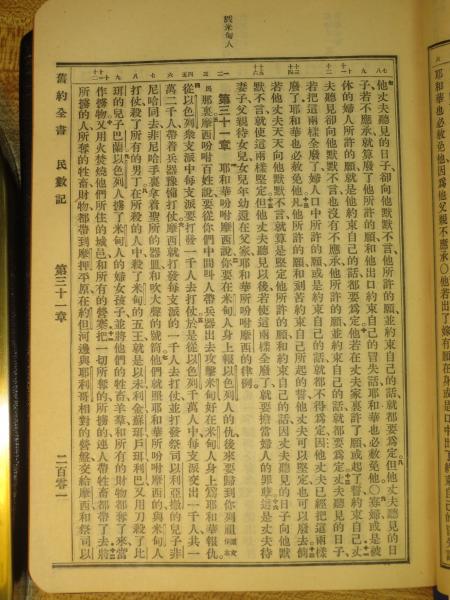 戮米甸人
他丈夫聽見的日子、卻向他默默不言、他所許的願、並約束自己的話、就都要為定。但他丈夫聽見的日
子、若不應承、就算廢了他所許的願、和他出口約束自己的冒失話、耶和華也必赦免他。〇寡婦或是被
休的婦人所許的願、就是他約束自己的話、都要為定。他若在丈夫家裏許了願、或起了誓約束自己、丈
夫聽見、卻向他默默不言、也沒有不應承、他所許的願、並約束自己的話、就都要為定。丈夫聽見的日子、
若把這兩樣全廢了、婦人口中所許的願、或是約束自己的話、就都不得為定、因他丈夫已經把這兩樣
廢了、耶和華也必赦免他。凡他所許的願、和刻苦約束自己所起的誓、他丈夫可以堅定、也可以廢去。倘
若他丈夫天天向他默默不言、就算是堅定他所許的願、和約束自己的話、因丈夫聽見的日子、向他默
默不言、就使這兩樣堅定。但他丈夫聽見以後、若使這兩樣全廢了、就要擔當婦人的罪孽。這是丈夫待
妻子、父親待女兒、女兒年幼還在父家、耶和華所吩咐摩西的律例。
第三十一章 耶和華吩咐摩西說、你要在米甸人身上報以色列人的仇、後來要歸到你列祖
那裏。摩西吩咐百姓說、要從你們中間叫人帶兵器出去攻擊米甸、好在米甸人身上為耶和華報仇。
從以色列眾支派中、每支派要打發一千人去打仗。於是從以色列千萬人中、每支派交出一千人、共一
萬二千人、帶着兵器豫備打仗。摩西就打發每支派的一千人去打仗、並打發祭司以利亞撒的兒子非
尼哈同去、非尼哈手裏拿着聖所的器皿、和吹大聲的號筒。他們就照耶和華所吩咐摩西的、與米甸人
打仗、殺了所有的男丁。在所殺的人中、殺了米甸的五王、就是以未、利金、蘇珥、戶珥、利巴、又用刀殺了比
珥的兒子巴蘭。以色列人擄了米甸人的婦女孩子、並將他們的牲畜、羊羣、和所有的財物都奪了來、當
作擄物。又用火焚燒他們所住的城邑、和所有的營寨、把一切所奪的、所擄的、連人帶牲畜都帶了去。將
所擄的人、所奪的牲畜財物、都帶到摩押平原、在約但河邊、與耶利哥相對的營盤、交給摩西、和祭司以
舊約全書 民數記 第三十一章 二百零一